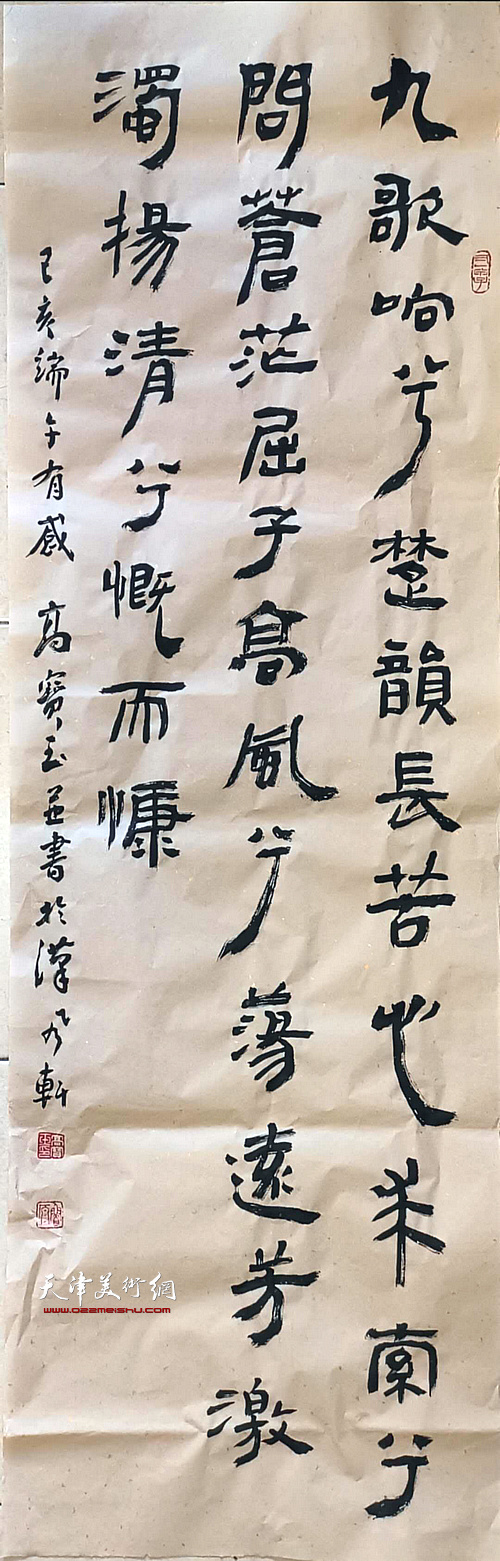 九歌响兮楚韻長苦心求索兮
問蒼茫屈子高風兮蕩遠芳激
濁揚清兮慨而慷
己亥端午有感 高寶玉並書於漢風軒
天津美術網
www.022meishu.com